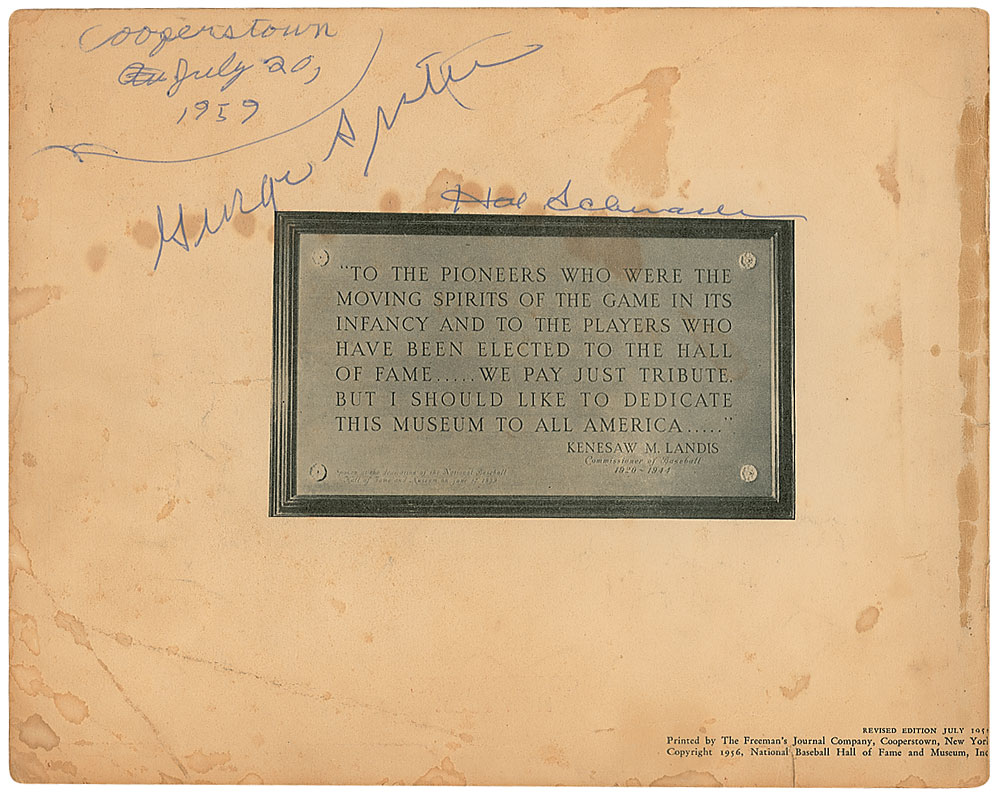 Cooperstown
July 20,
1959
George
Hal
"TO THE PIONEERS WHO WERE THE
MOVING SPIRITS OF THE GAME IN ITS
INFANCY AND TO THE PLAYERS WHO
HAVE BEEN ELECTED TO THE HALL
OF FAME.....WE PAY JUST TRIBUTE.
BUT I SHOULD LIKE TO DEDICATE
THIS MUSEUM TO ALL AMERICA....."
KENESAW M. LANDIS
Commissioner of Baseball
1920-1944
Spoken at the dedication of the National Baseball
Hall of Fame and Museum on June 12, 1939
REVISED EDITION JULY
Printed by The Freeman's Journal Company, Cooperstown, New
Copyright 1956, National Baseball Hall of Fame and Museum,